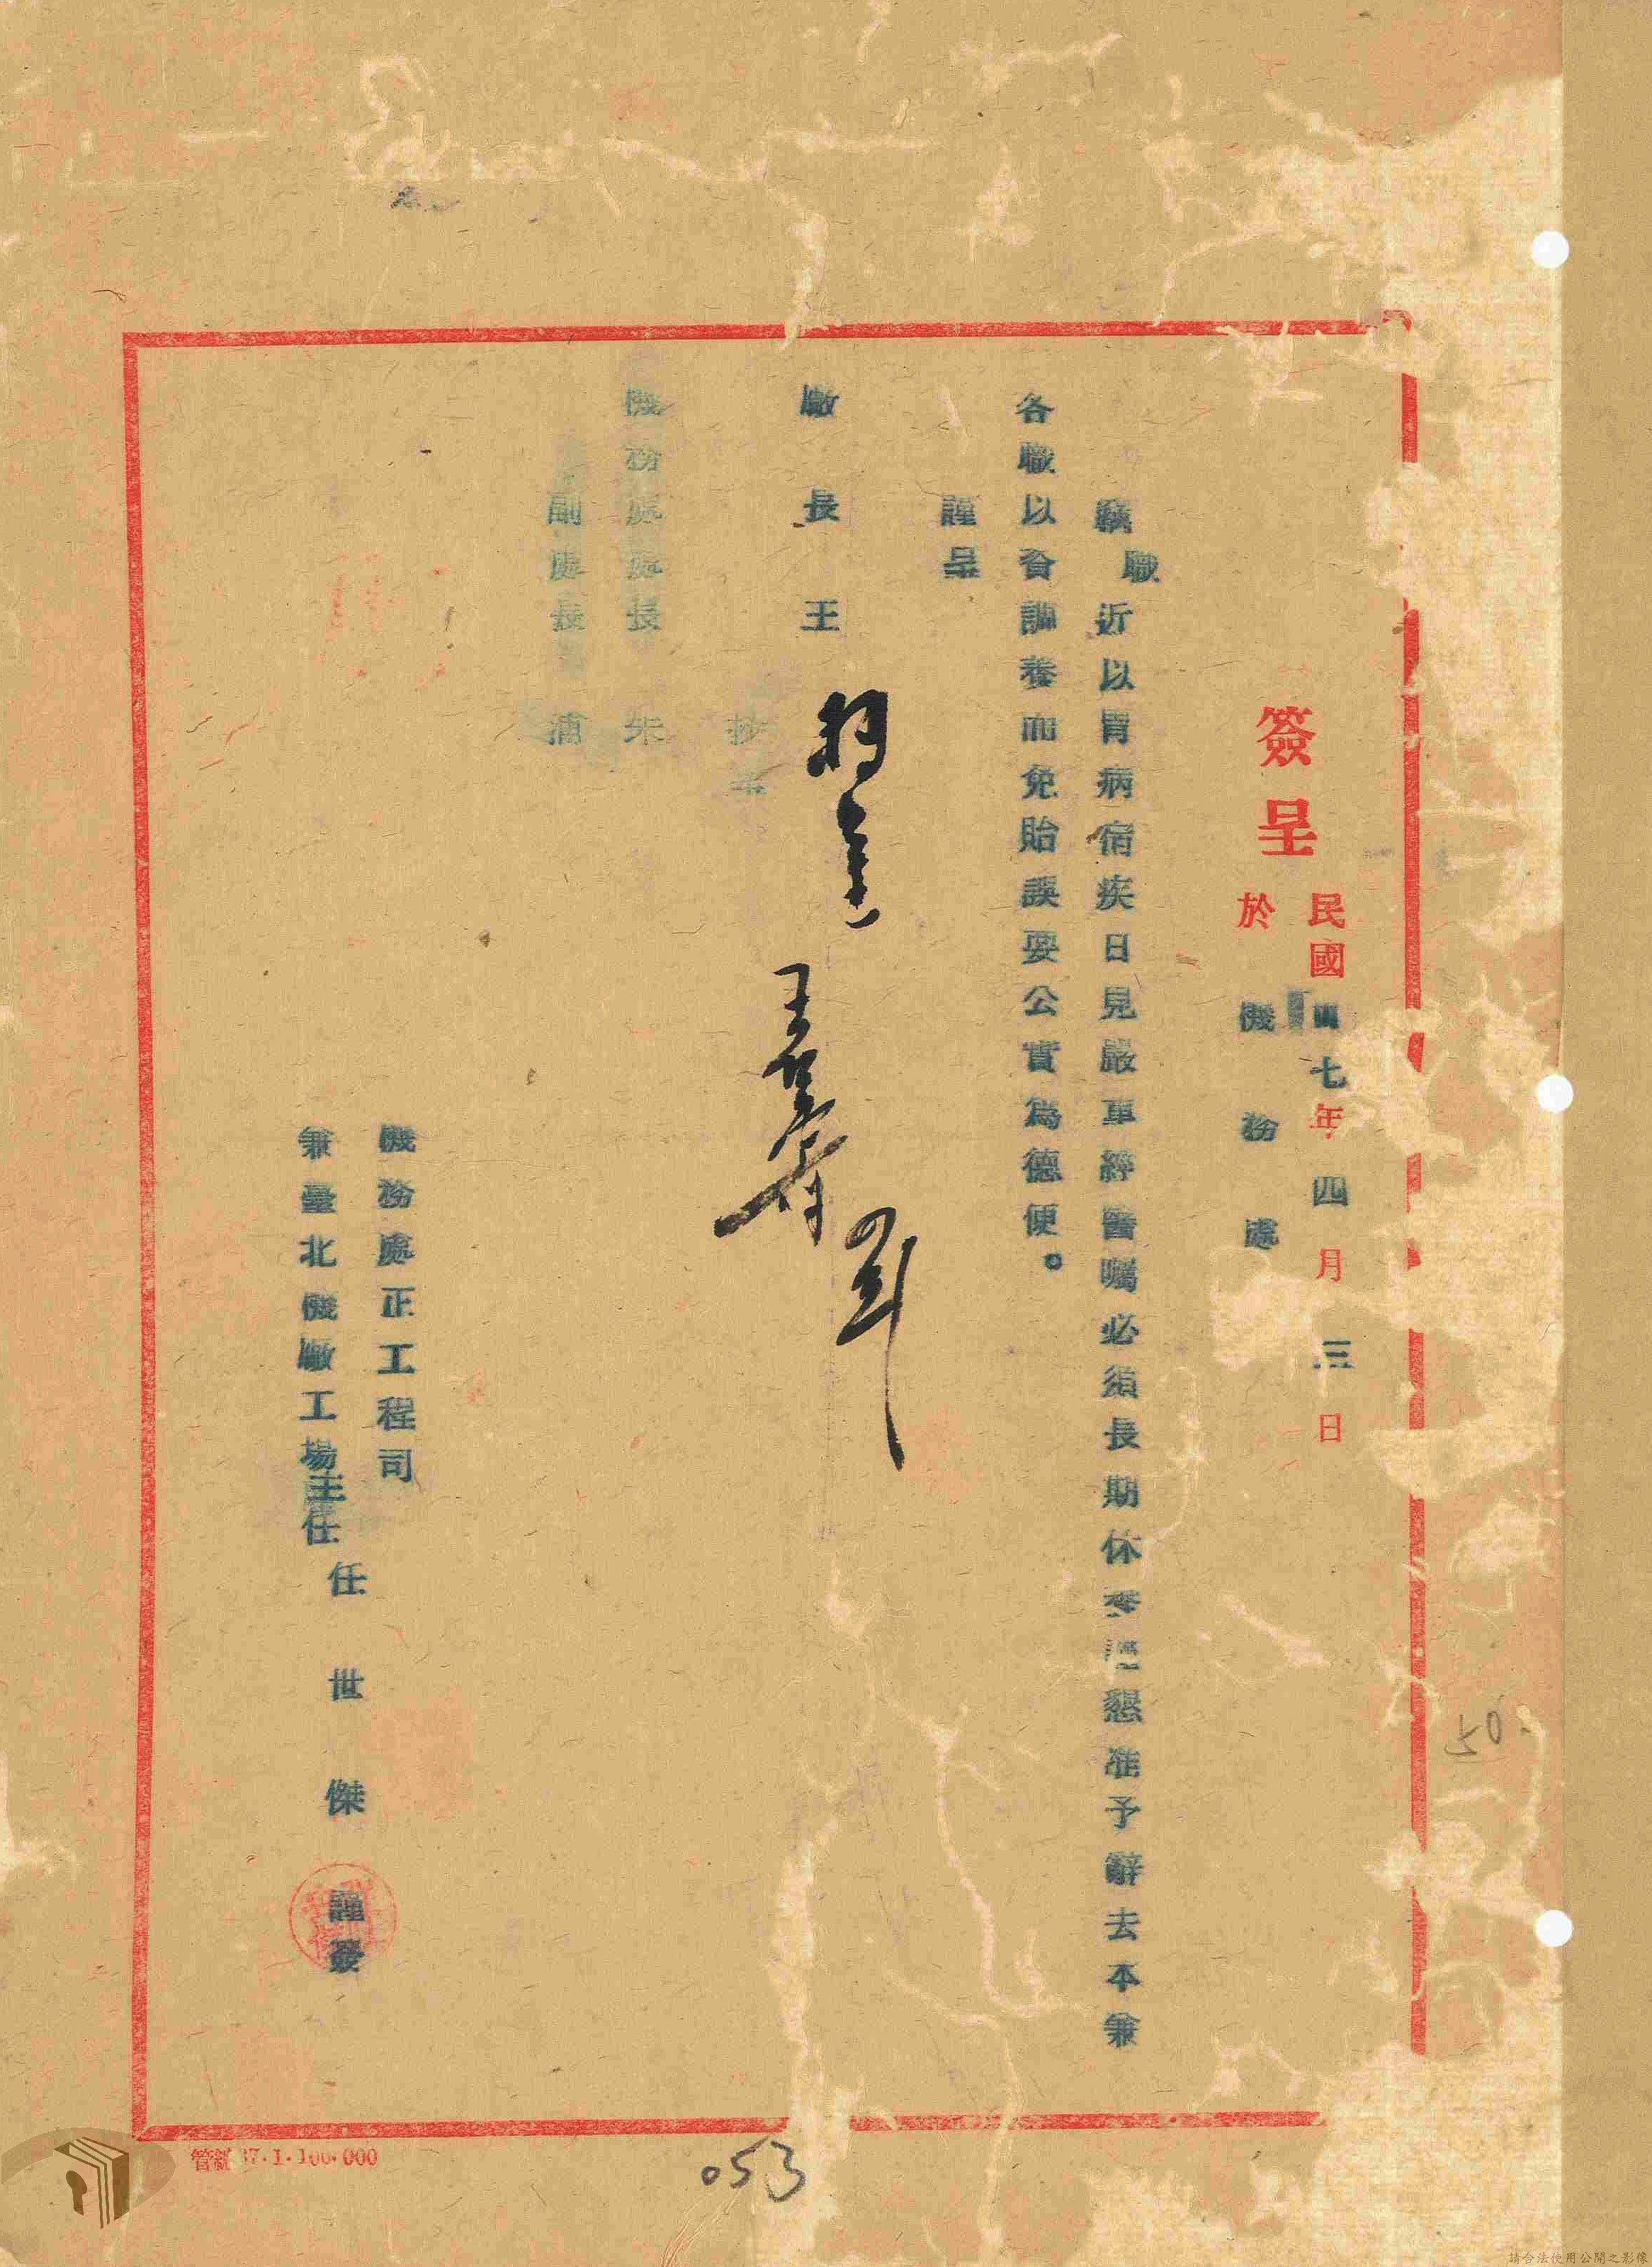 簽呈
民國四七年四月三日
於機務處
竊職近以胃病宿疾日見嚴重經醫囑必須長期休養懇准予辭去本兼
各職以資調養而免貽誤要公實為德便。
謹呈
廠長王
機務處處長朱
副處長浦
機務處正工程司
兼臺北機廠工場主任
任世傑謹簽
50.
053
管紙 37.1.100.000
請合法使用公開之影像